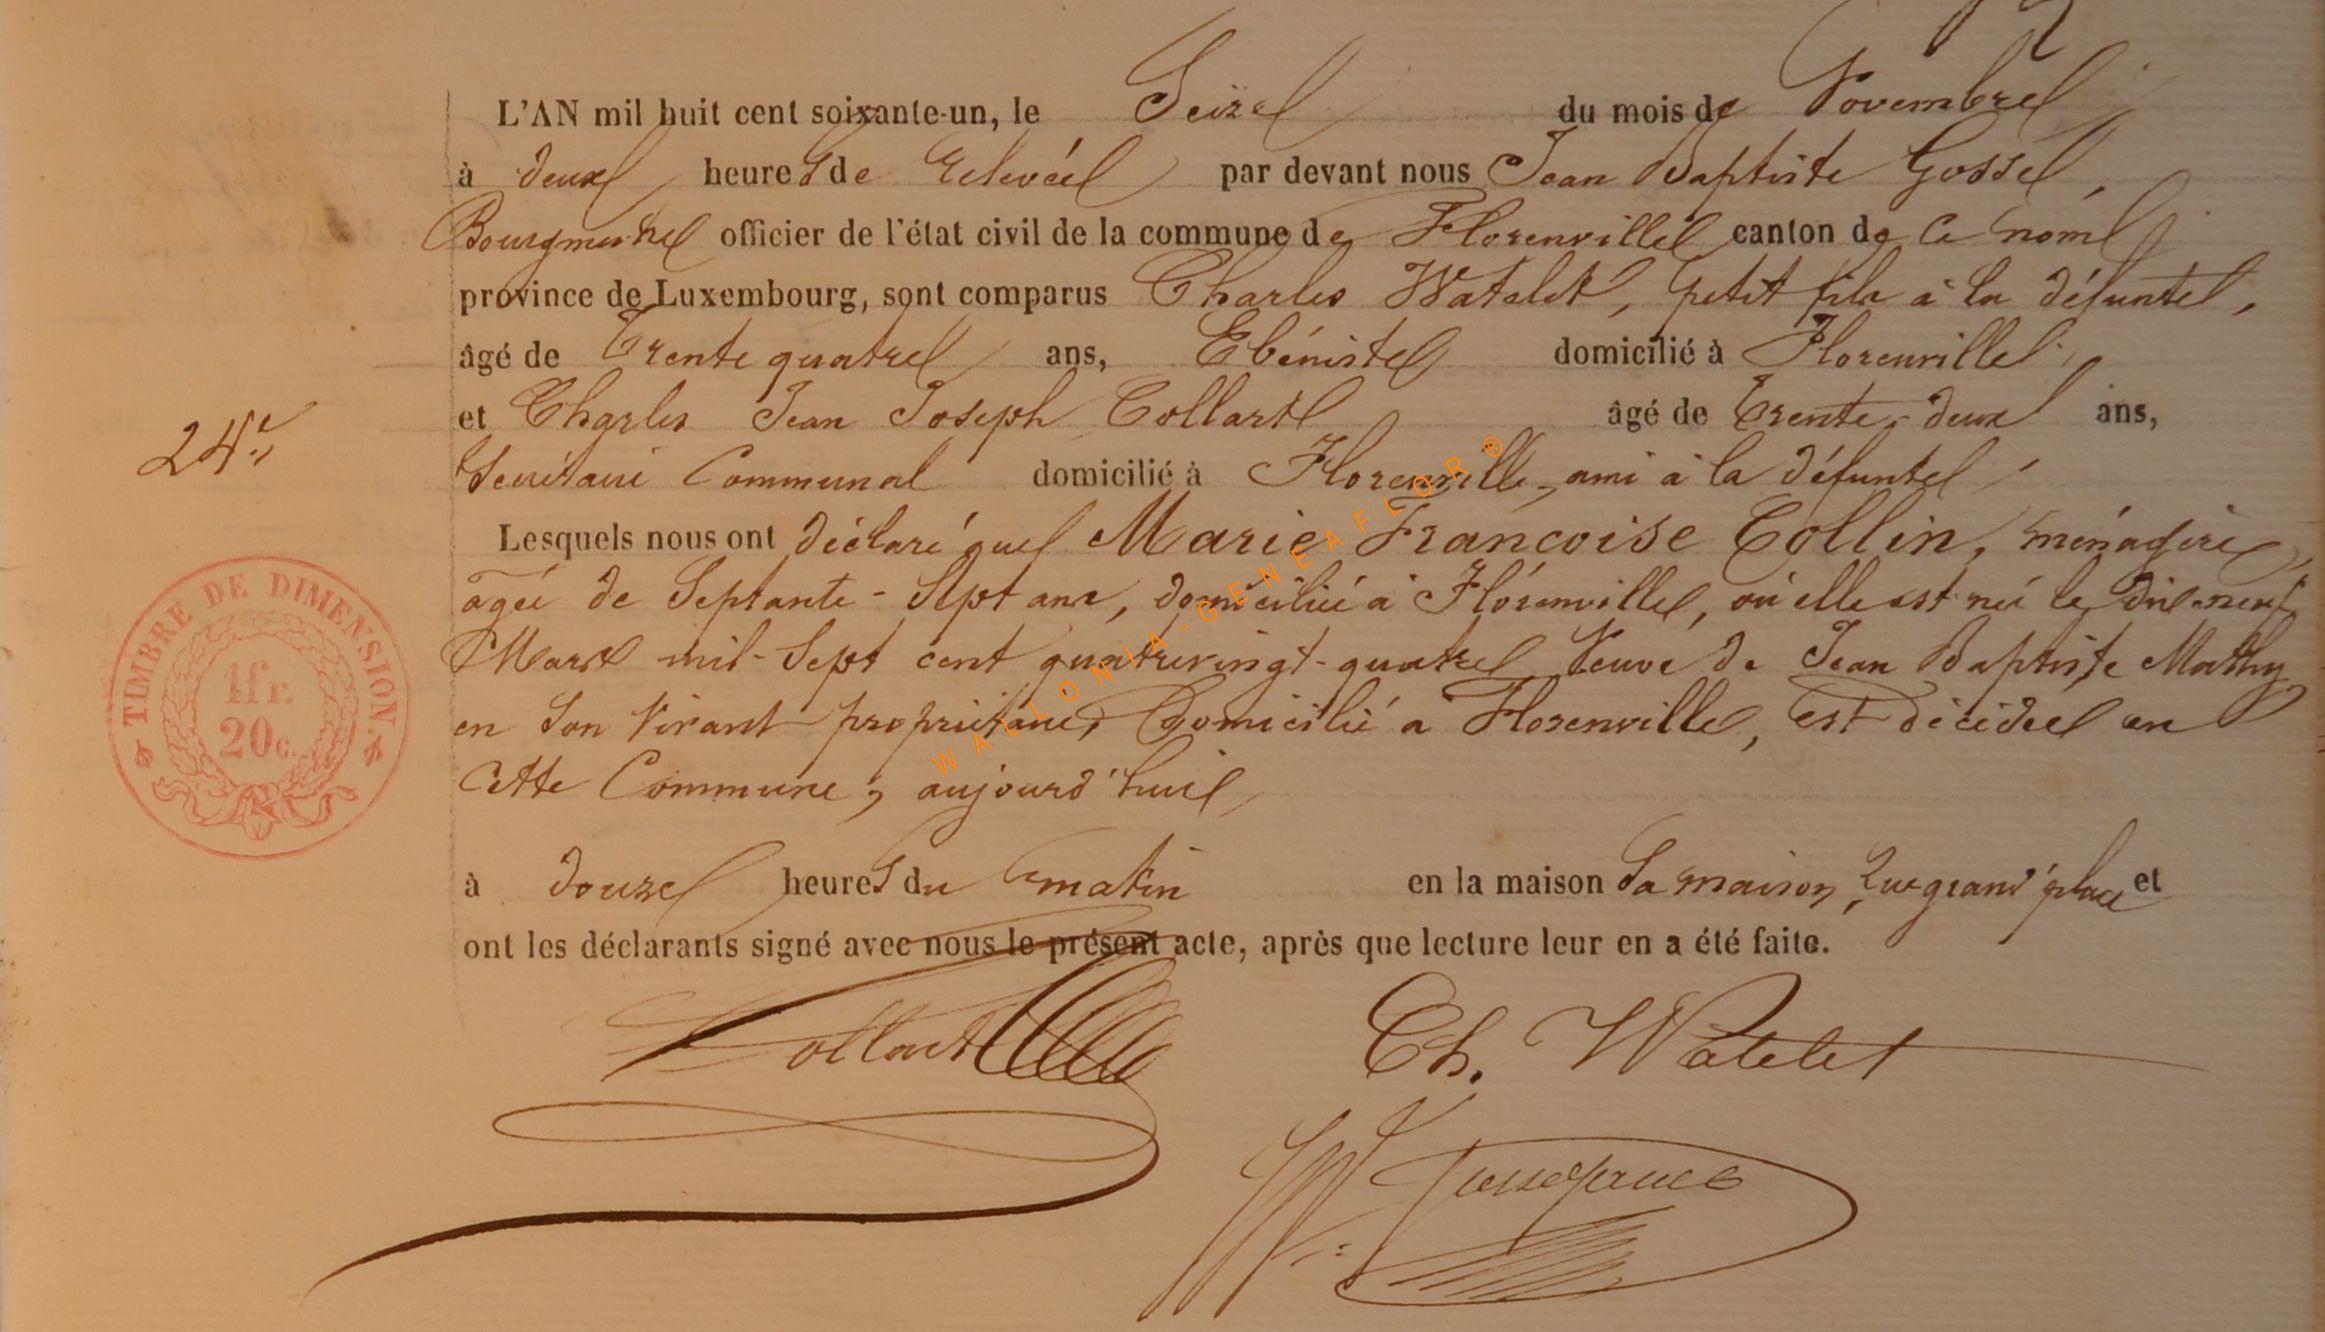 L'AN mil huit cent soixante-un, le Seize du mois de Novembre
à deux heures de Relevée par devant nous Jean Baptiste Gosse,
Bourgmestre officier de l'état civil de la commune de Florenville canton de ce nom
province de Luxembourg, sont comparus Charles Watelet, petit fils à la défunte,
âgé de Trente quatre ans, Ebéniste domicilié à Florenville
et Charles Jean Joseph Collart âgé de Trente-deux ans,
Secrétaire Communal domicilié à Florenville, ami à la défunte
24e
Lesquels nous ont déclaré que Marie Françoise Collin, ménagère,
agée de Septante-Sept ans, domiciliée à Florenville, où elle est née le dix-neuf
Mars mil-Sept cent quatrevingt-quatre, Veuve de Jean Baptiste Mathy
en Son Vivant propriétaire, Domicilié à Florenville, est décédée en
cette Commune, aujourd'hui,
à douze heures du matin en la maison Sa maison, rue grand'place et
ont les déclarants signé avec nous le présent acte, après que lecture leur en a été faite.
TIMBRE DE DIMENSION.
1fr.
20c.
Collart
Ch. Watelet
WALLONIA-GENEAFLOR®